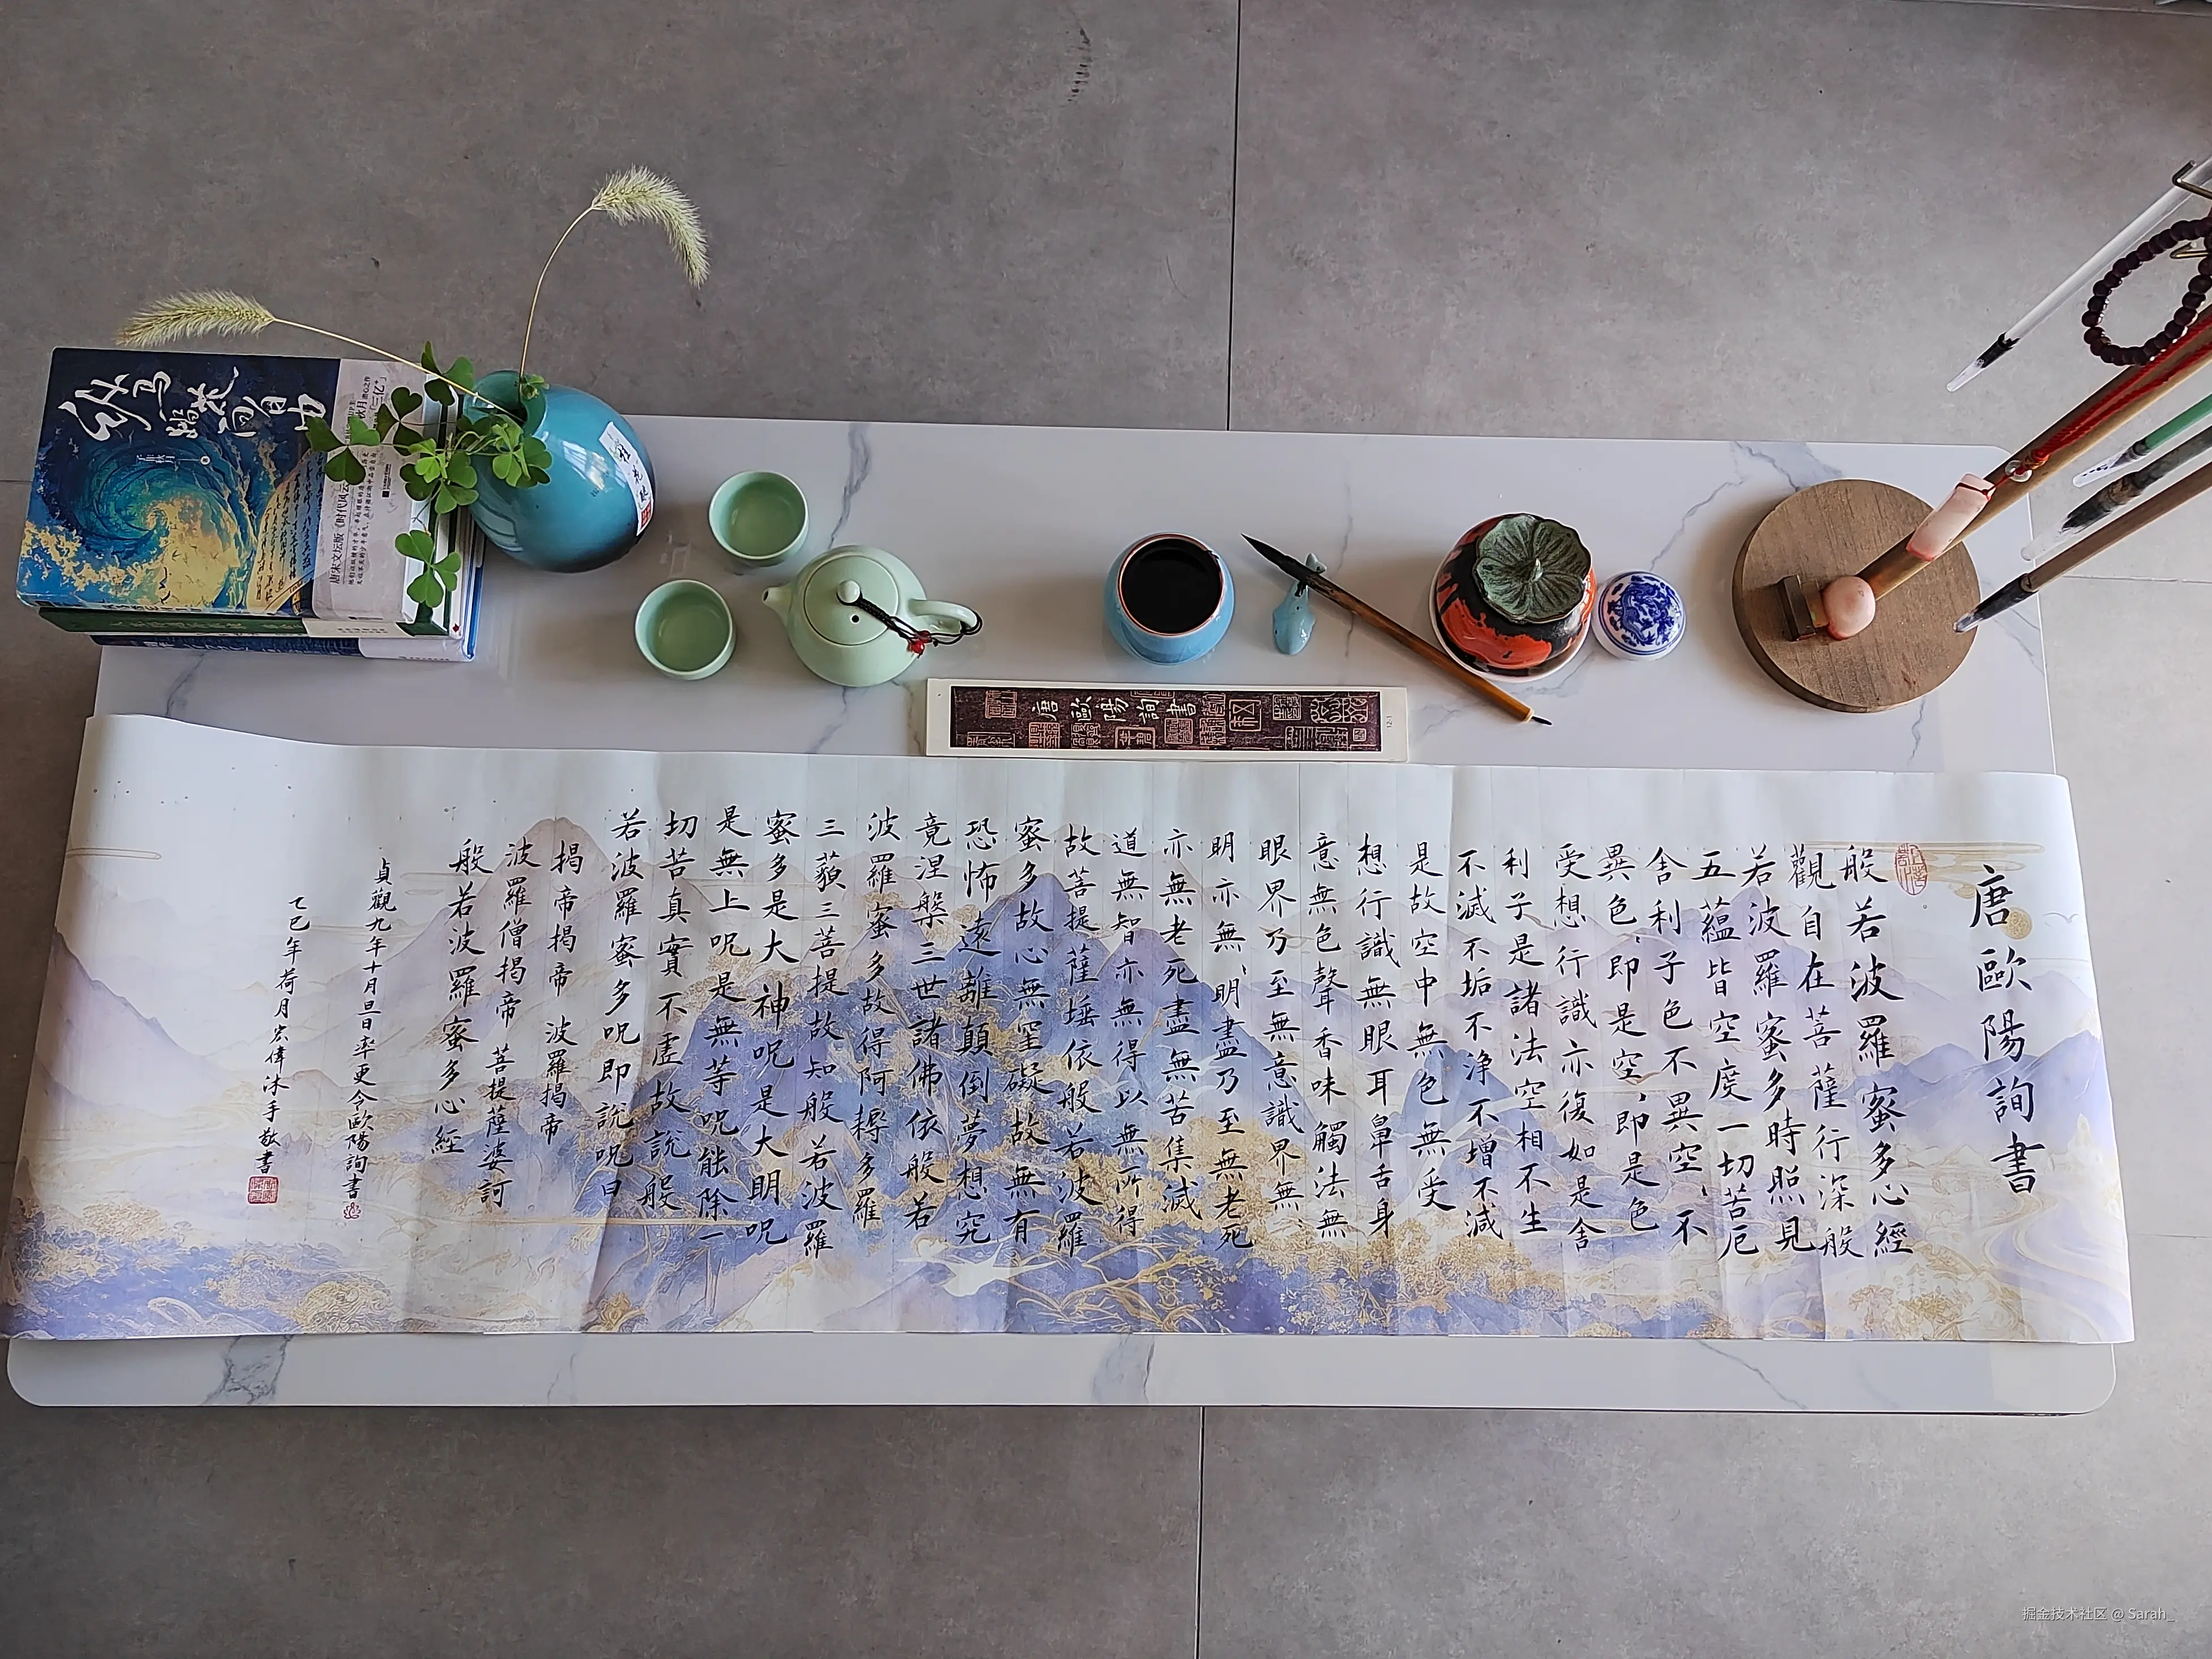 唐歐陽詢書
般若波羅蜜多心經
觀自在菩薩行深般
若波羅蜜多時照見
五蘊皆空度一切苦厄
舍利子色不異空、不
異色、即是空、即是色
受想行識亦復如是舍
利子是諸法空相不生
不滅不垢不淨不增不減
是故空中無色無受
想行識無眼耳鼻舌身
意無色聲香味觸法無
眼界乃至無意識界無
明亦無、明盡乃至無老死
亦無老死盡無苦集滅
道無智亦無得以無所得
故菩提薩埵依般若波羅
蜜多故心無罣礙故無有
恐怖遠離顛倒夢想究
竟涅槃三世諸佛依般若
波羅蜜多故得阿耨多羅
三藐三菩提故知般若波羅
蜜多是大神呪是大明呪
是無上呪是無等呪能除一
切苦真實不虛故說般
若波羅蜜多呪即說呪曰
揭帝揭帝 波羅揭帝
波羅僧揭帝 菩提薩婆訶
般若波羅蜜多心經
貞觀九年十月旦日率更令歐陽詢書
乙巳年荷月宏偉沐手敬書
唐歐陽詢書
12-1
子非秋月 著
唐宋文坛版《时代风云》
掘金技术社区 @ Sarah_